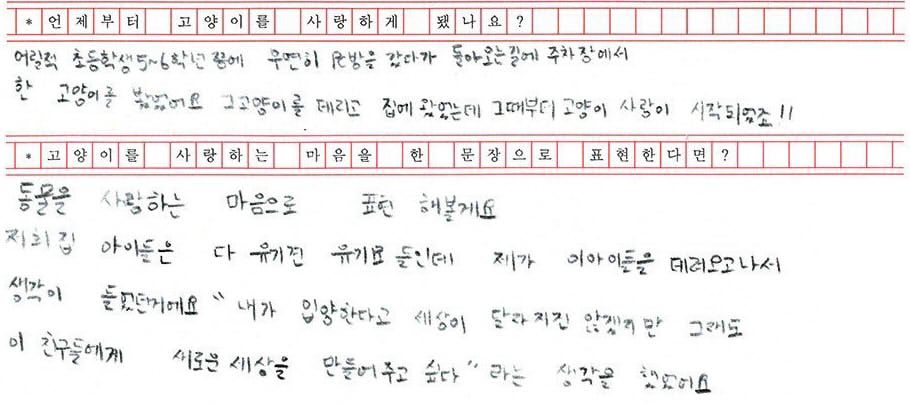 * 언제부터 고양이를 사랑하게 됐나요?
어릴적 초등학생5~6학년쯤에 우연히 PC방을 갔다가 돌아오는길에 주차장에서
한 고양이를 봤었어요 그고양이를 데리고 집에 왔었는데 그때부터 고양이 사랑이 시작되었죠!!
* 고양이를 사랑하는 마음을 한 문장으로 표현한다면?
동물을 사랑하는 마음으로 표현 해볼게요
저희집 아이들은 다 유기견 유기묘 들인데 제가 이아이들을 데려오고나서
생각이 들었던거에요 "내가 입양한다고 세상이 달라지진 않겠지만 그래도
이 친구들에게 새로운 세상을 만들어주고 싶다" 라는 생각을 했었어요